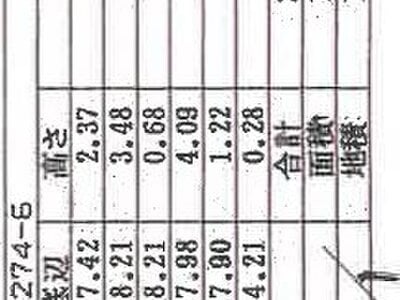 274-6
底辺 高さ
7.42 2.37
8.21 3.48
8.21 0.68
7.98 4.09
7.90 1.22
4.21 0.28
合計
面積
地積